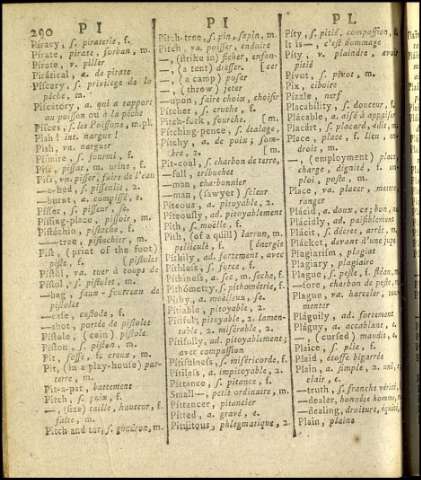 290 P I
P I
P L
Piracy, s. piraterie, f.
Pirate, pirate, forban, m.
Pirate, v. piller
Pirátical, a. de pirate
Piscary, s. privilege de la
pêche, m.
Piscatory, a. qui a rapport
au poisson ou à la pêche
Pisces, s. les Poissons, m. pl.
Pish! int. nargue!
Pish, va. narguer
Pismire, s. fourmi, f.
Piss, pissat, m. urine, f.
Piss, vn. pisser; faire de l'eau
—a-bed, s. pissenlit, 2.
—burnt, a. compissé, e.
Pisser, s. pisseur, se.
Pissing-place, pissoir, m.
Pistáchio, pistache, f.
—tree, pistachier, m.
Piste, (print of the foot)
piste, f. [pistolet
Pistol, va. tuer à coups de
Pistol, s. pistolet, m.
—bag, faux-fourreau de
pistolet
—case, custode, f.
—shot, portée de pistolet
Pistole, (coin) pistole
Piston, s. piston, m.
Pit, fosse, f. creux, m.
Pit, (in a play-house) par-
terre, m.
Pit-a-pat, battement
Pitch, s. poix, f.
—, (size) taille, hauteur, f.
faîte, m.
Pitch and tar, s. goudron, m.
Pitch-tree, s. pin, sapin, m.
Pitch, va. poisser, enduire
—, (strike in) ficher, enfon-
—, (a tent) dresser. [cer
—, (a camp) poser
—, (throw) jeter
—upon, faire choix, choisir
Pitcher, s. cruche, f.
Pitch-fork, fourche. [m.
Pitching-pence, s. étalage,
Pitchy, a. de poix; som-
bre, 2. [m.
Pit-coal, s. charbon de terre,
—fall, trébuchet
—man, charbonnier
—man, (sawyer) scieur
Piteous, a. pitoyable, 2.
Piteously, ad. pitoyablement
Pith, s. moelle, f.
Pith, (of a quill) larron, m.
pellicule, f. [énergie
Pithily, ad. fortement, avec
Pithiness, s. force, f.
Pithless, a. sec, m. seche, f.
Pithómetry, s. pithométrie, f.
Pithy, a. moëlleux, se.
Pitiable, pitoyable, 2.
Pitiful, pitoyable, 2. lamen-
table, 2. misérable, 2.
Pitifully, ad. pitoyablement;
avec compassion
Pitifulness, s. miséricorde, f.
Pitiless, a. impitoyable, 2.
Pittance, s. pitance, f.
Small—, petit ordinaire, m.
Pittancer, pitancier
Pitted, a. gravé, e.
Pituitous, phlegmatique, 2.
Pity, s. pitié, compassion,
It is—, c'est dommage
Pity, v. plaindre, avoir
pitié
Pivot, s. pivot, m.
Pix, ciboire
Pizzle, nerf
Placability, s. douceur, f.
Plácable, a. aisé à
Placárt, s. placard, édit, m.
Place, place, f. lieu,
droit, m.
—, (employment) place,
charge, dignité, f.
ploi, poste, m.
Place, va. placer,
ranger
Plácid, a. doux, ce; bon,
Plácidly, ad. paisiblement
Plácit, s. décret, arrêt, m.
Plácket, devant d'une jupe
Plagiarism, plagiat
Plagiary, plagiaire
Plague, s. peste, f. fléau, m.
—sore, charbon de peste,
Plague, va. harceler,
menter
Pláguily, ad. fortement
Pláguy, a. accablant,
—, (cursed) maudit,
Plaice, s. plie, f.
Plaid, étoffe bigarée
Plain, a. simple, 2. uni, e.
clair, e.
—truth, s. franche vérité,
—dealer, honnête homme,
—dealing, droiture,
Plain, plaine